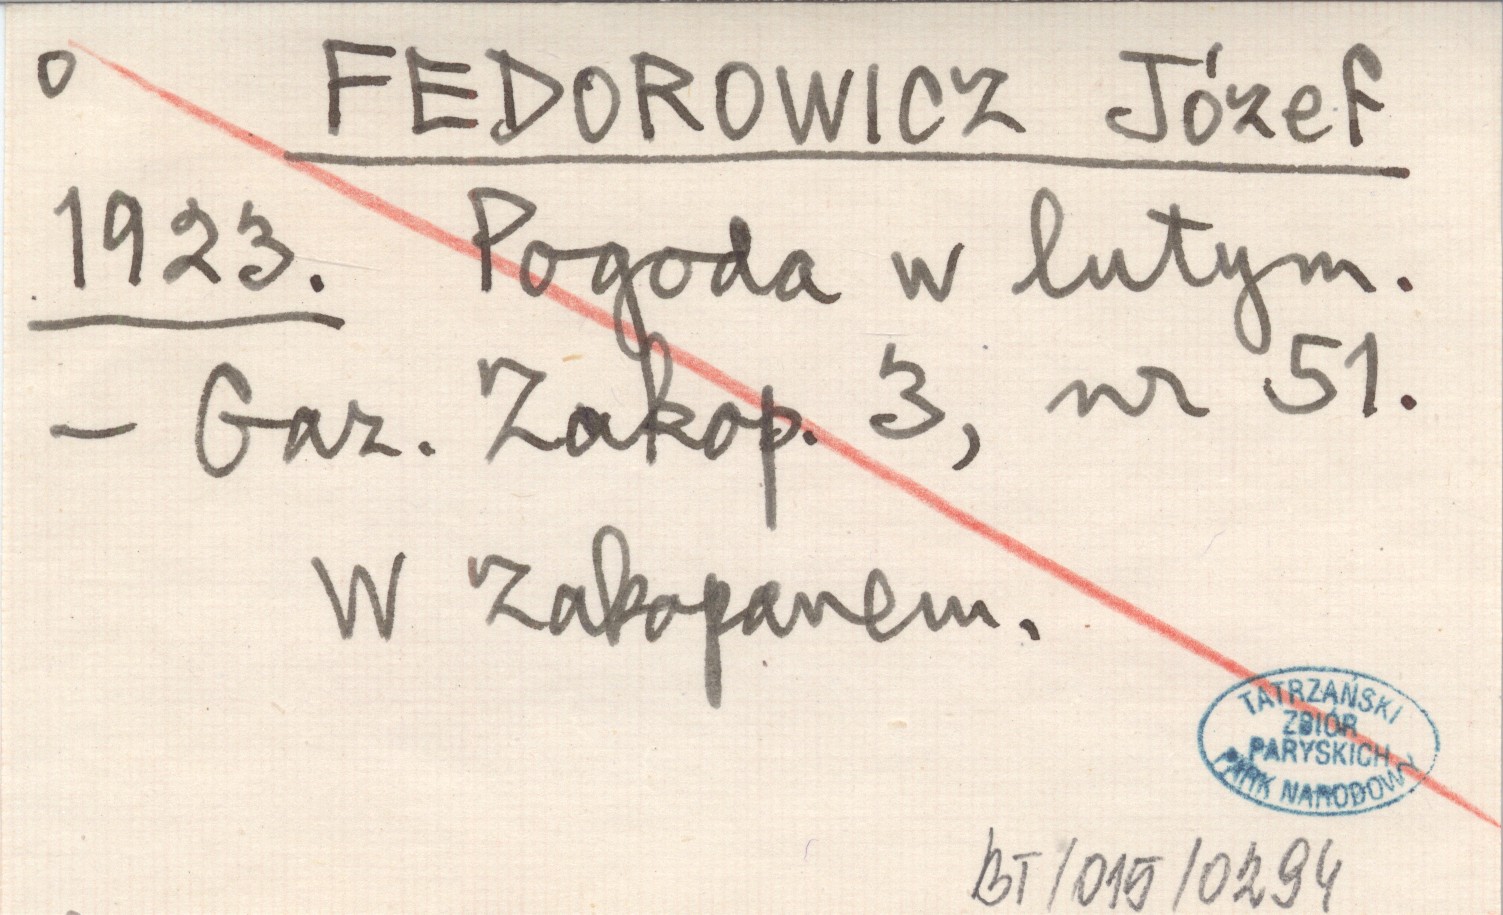 o FEDOROWICZ Józef
1923. Pogoda w lutym.
– Gaz. Zakop. 3, nr 51.
W Zakopanem.
TATRZAŃSKI
ZBIÓR
PARYSKICH
PARK NARODOWY
BT/015/0294